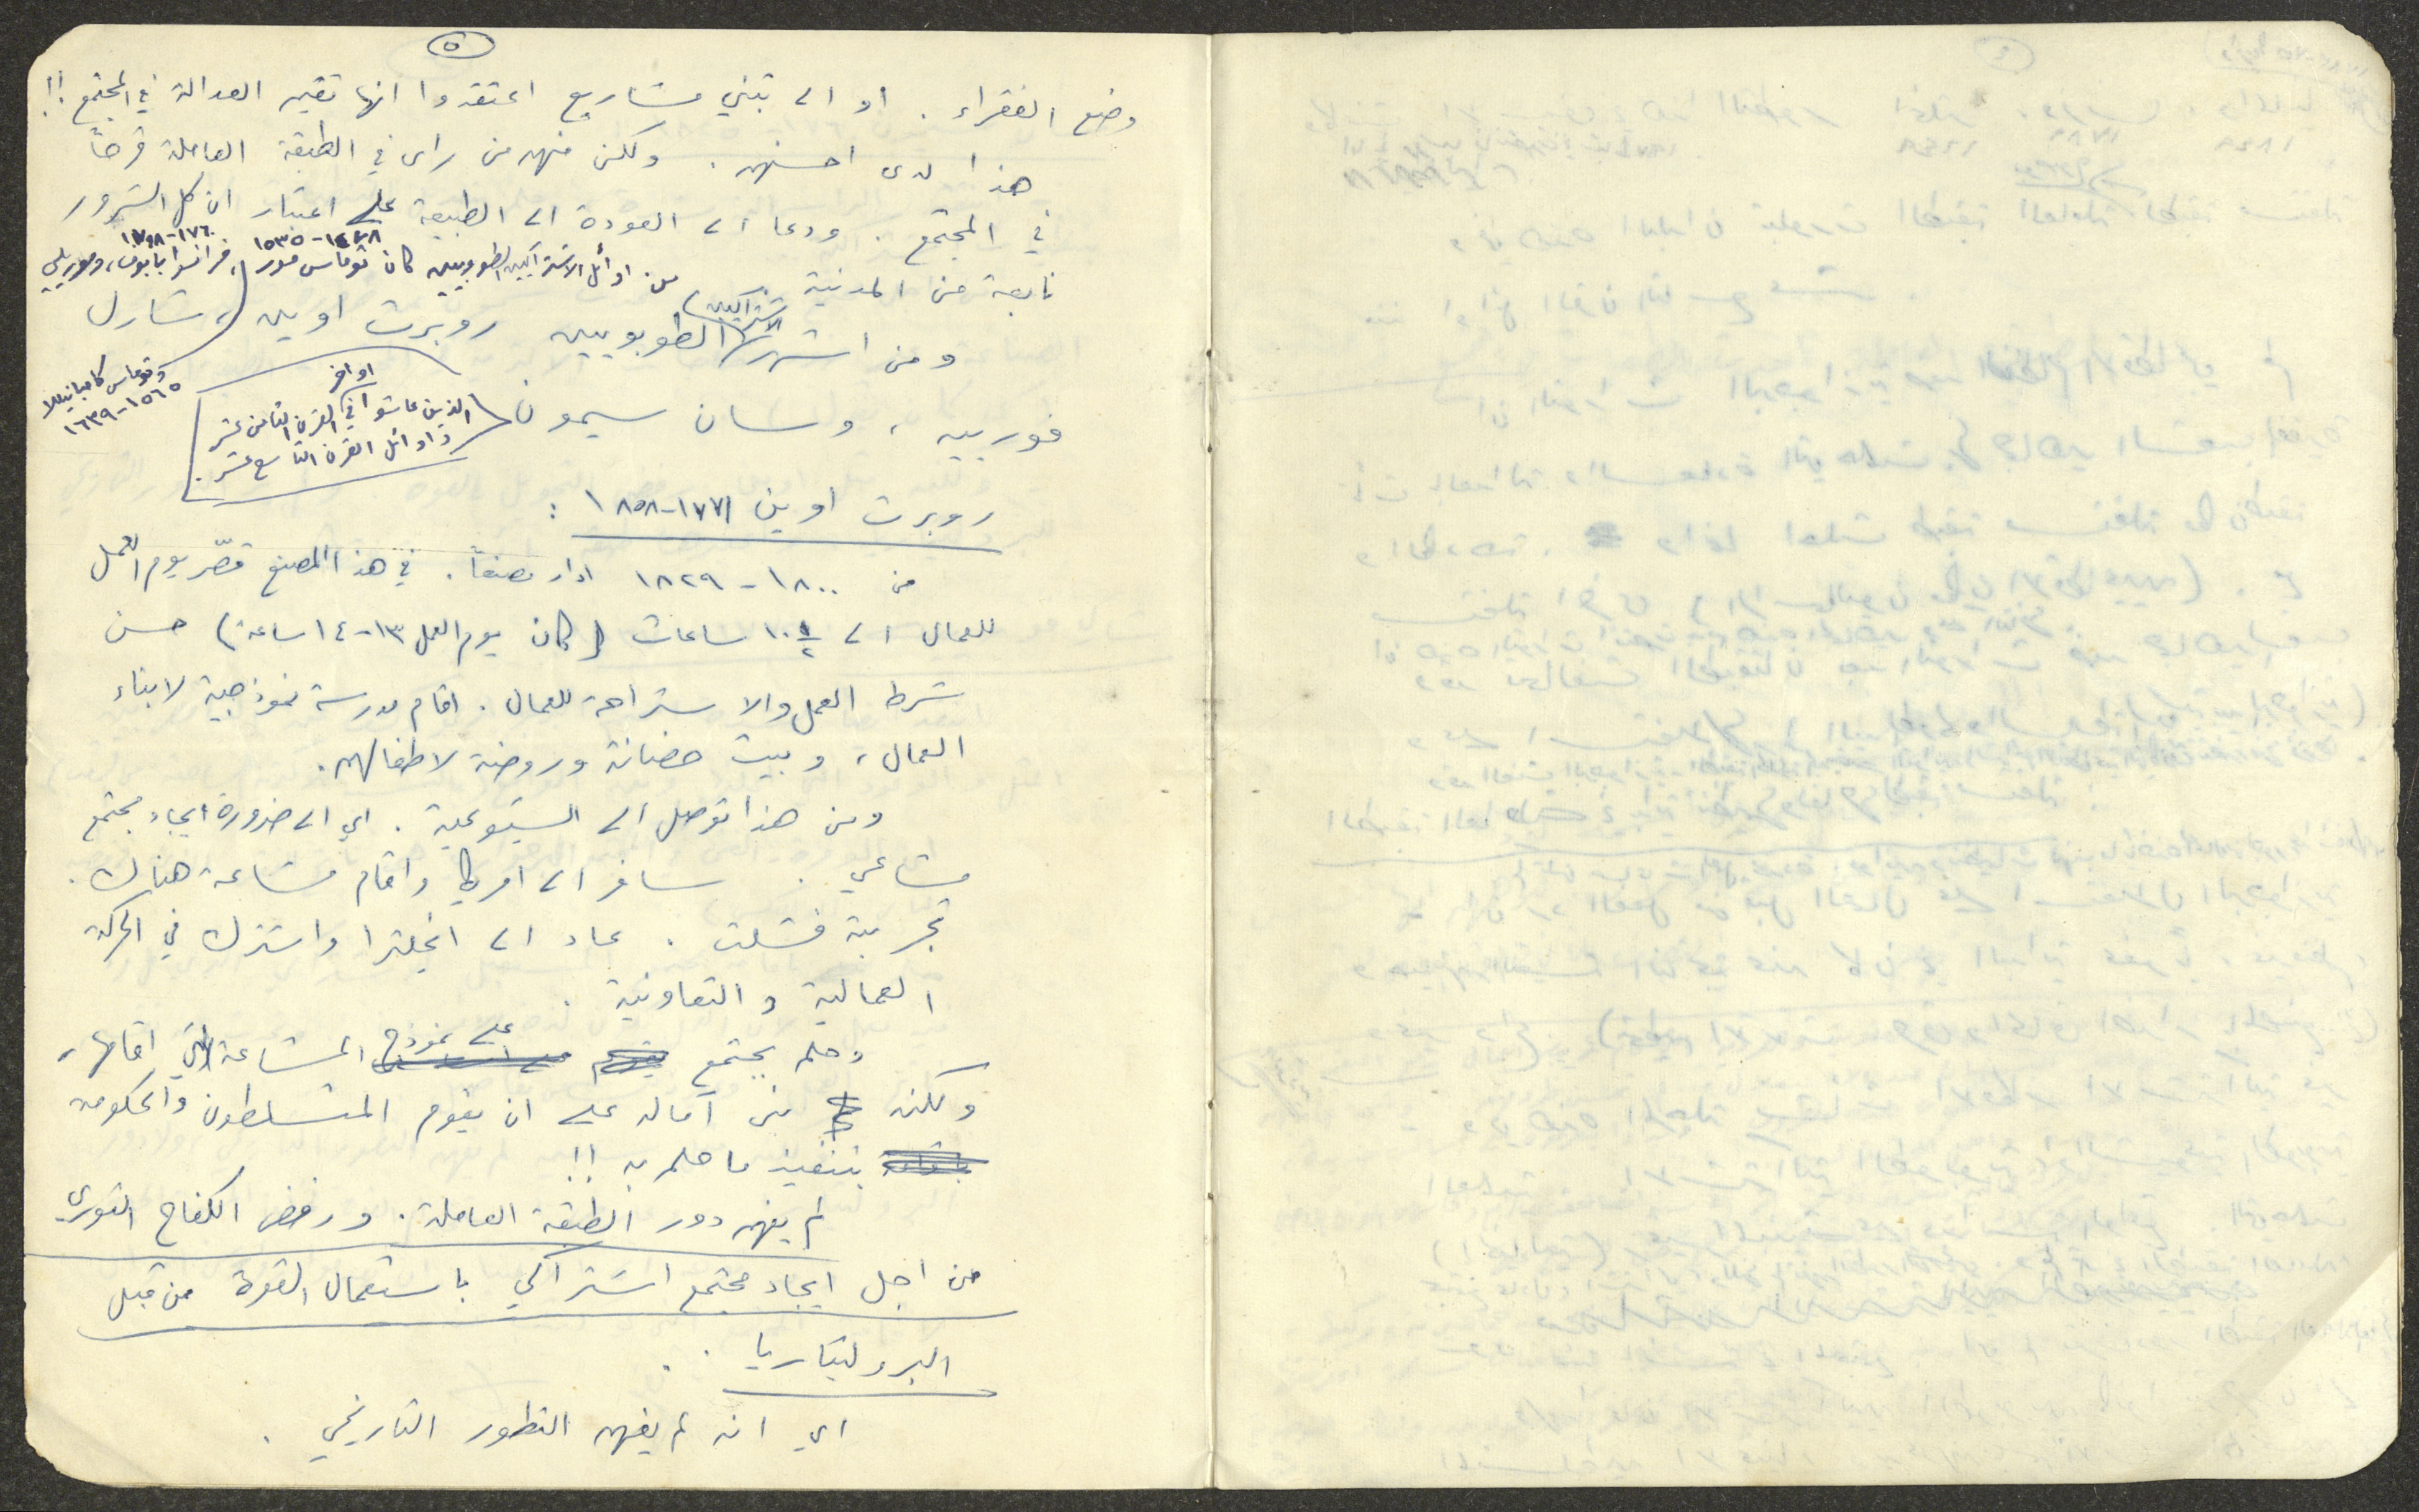 ٥
وضع الفقراء. او الى تبني مشاريع اعتقدوا انها تقيم العدالة في المجتمع!!
هذا لدى احسنهم. ولكن منهم من راى في الطبقة العاملة قرحاً
في المجتمع. ودعا الى العودة الى الطبيعة على اعتبار ان كل الشرور
نابعة من المدنية.
من اوائل الاشتراكيين الطوبويين كان توماس مور ١٤٧٨-١٥٣٥، فرانسوا بابوف ١٧٦٠-، وموريللي
وتوماس كامبانيللا
١٥٦٥-١٦٣٩
ومن اشهر الاشتراكيين الطوبويين روبرت اوين، شارل
فورييه، وسان سيمون (الذين عاشوا في اواخر القرن الثامن عشر
واوائل القرن التاسع عشر.)
روبرت اوين ١٧٧١-١٨٥٨:
من ١٨٠٠-١٨٢٩ ادار مصنعاً. في هذا المصنع قصّر يوم العمل
للعمال الى ١٠ ١/٢ ساعات (كان يوم العمل ١٣-١٤ ساعة) حسن
شرط العمل والاستراحة للعمال. اقام مدرسة نموذجية لابناء
العمال، وبيت حضانة وروضة لاطفالهم.
ومن هذا توصل الى الشيوعية. اي الى ضرورة ايجاد مجتمع
مشاعي. سافر الى امريكا واقام مشاعة هناك.
تجربة فشلت. عاد الى انجلترا واشترك في الحركة
العمالية والتعاونية.
وحلم بمجتمع على نموذج المشاعة التي اقامها،
ولكنه بنى آماله على ان يقوم المتسلطون والحكومة
بتنفيذ ما حلم به!!
لم يفهم دور الطبقة العاملة. ورفض الكفاح الثوري
من اجل ايجاد مجتمع اشتراكي باستعمال القوة من قبل
البروليتاريا..
اي انه لم يفهم التطور التاريخي.